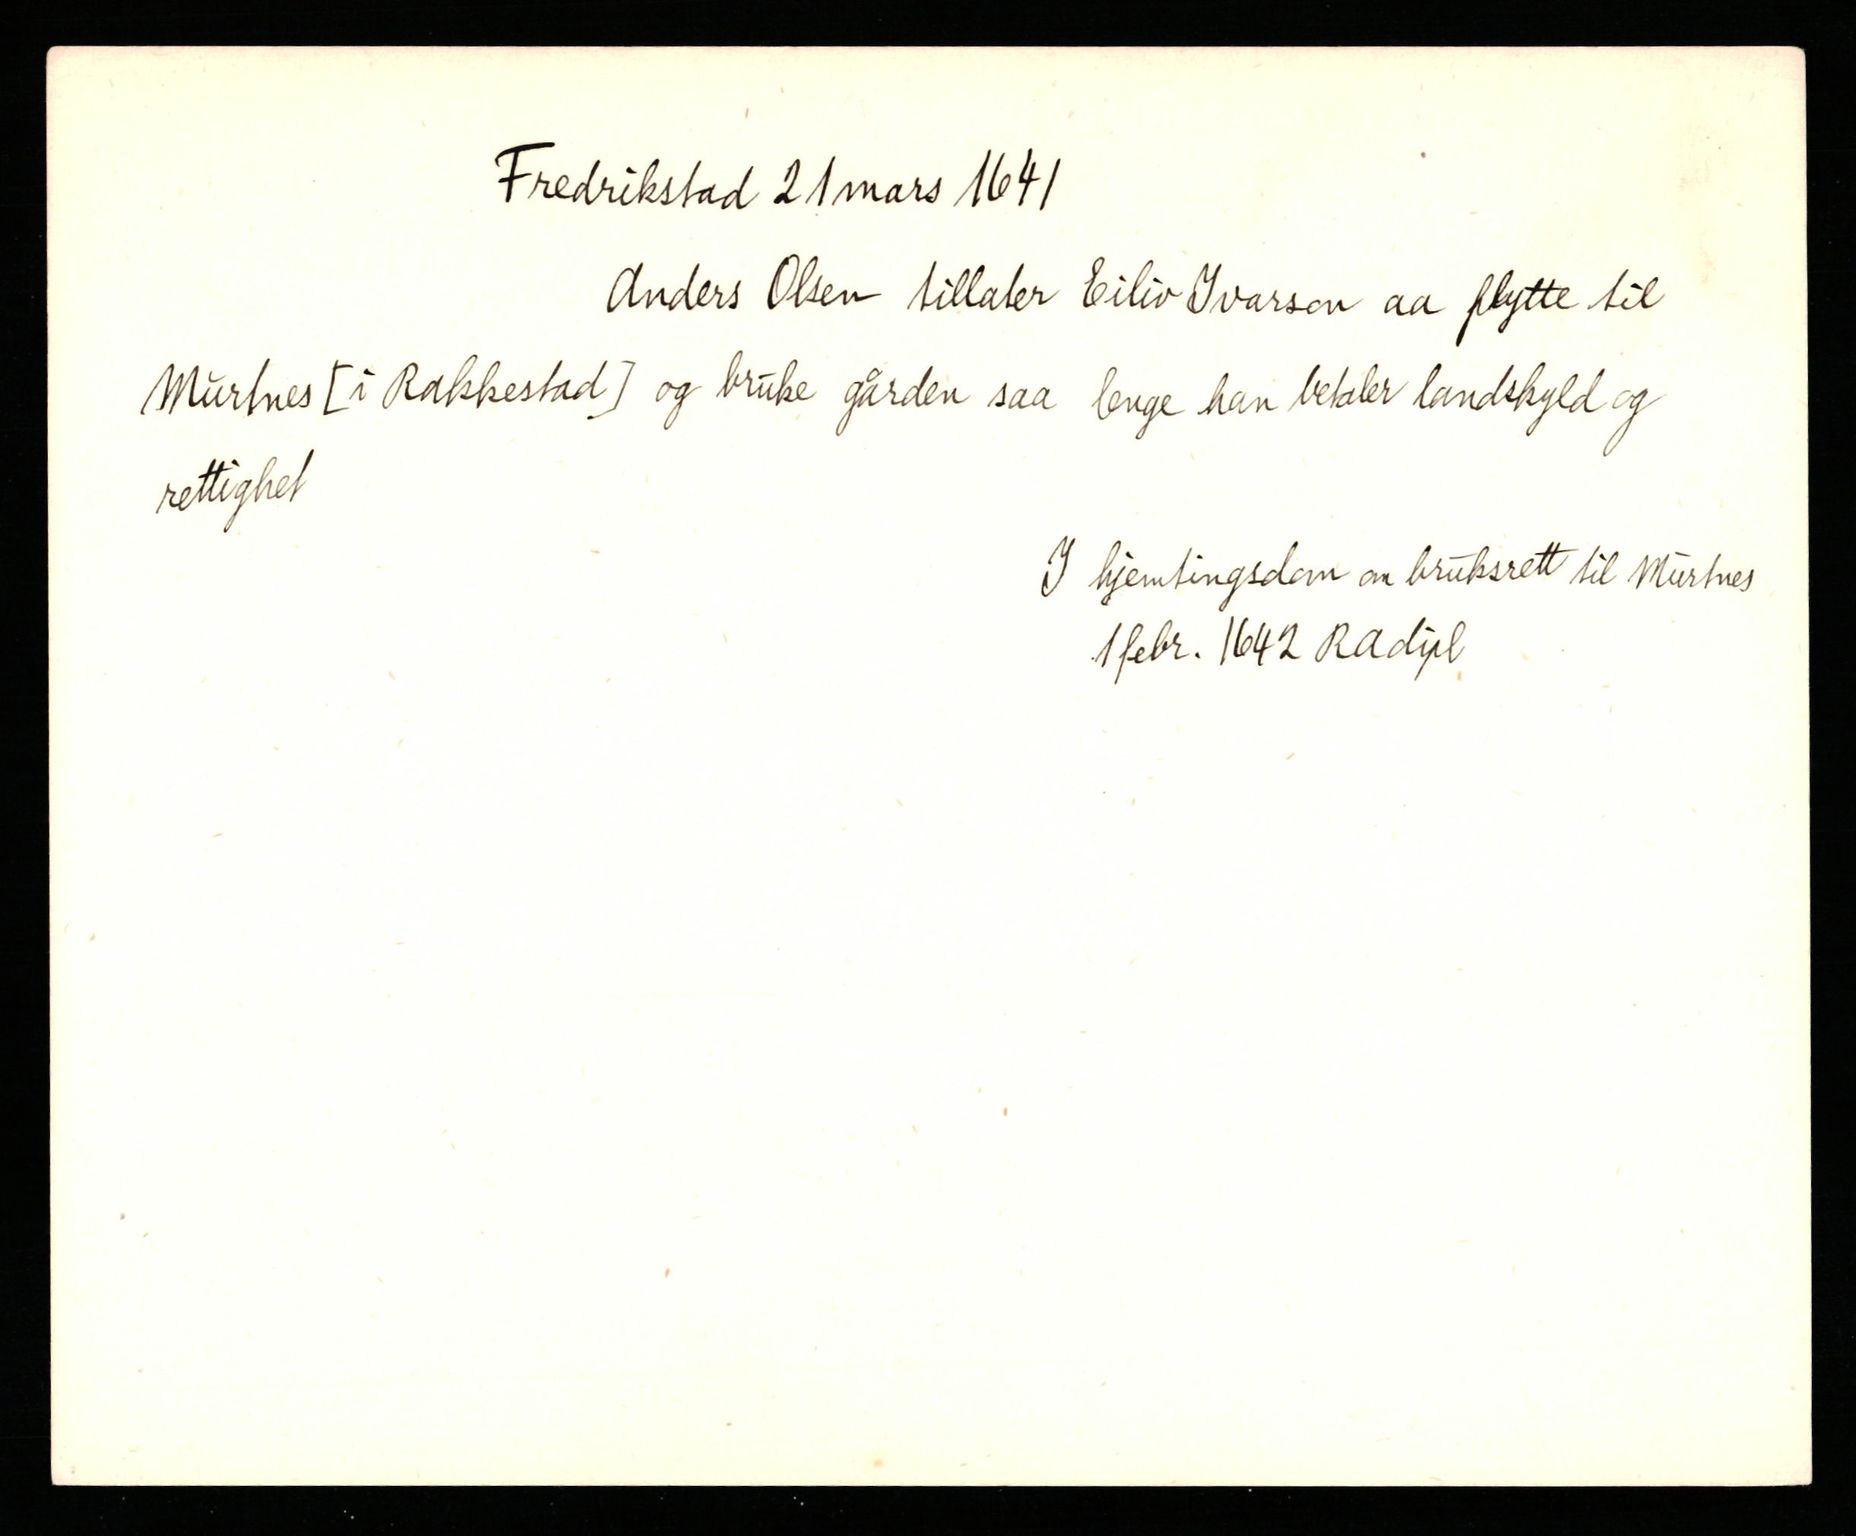 Fredrikstad 21 mars 1641
Anders Olsen tillater Eiliv Ivarson aa flytte til
Murtnes [i Rakkestad] og bruke gården saa lenge han betaler landskyld og
rettighet
I hjemtingsdom om bruksrett til Murtnes
1 febr. 1642 RA dipl